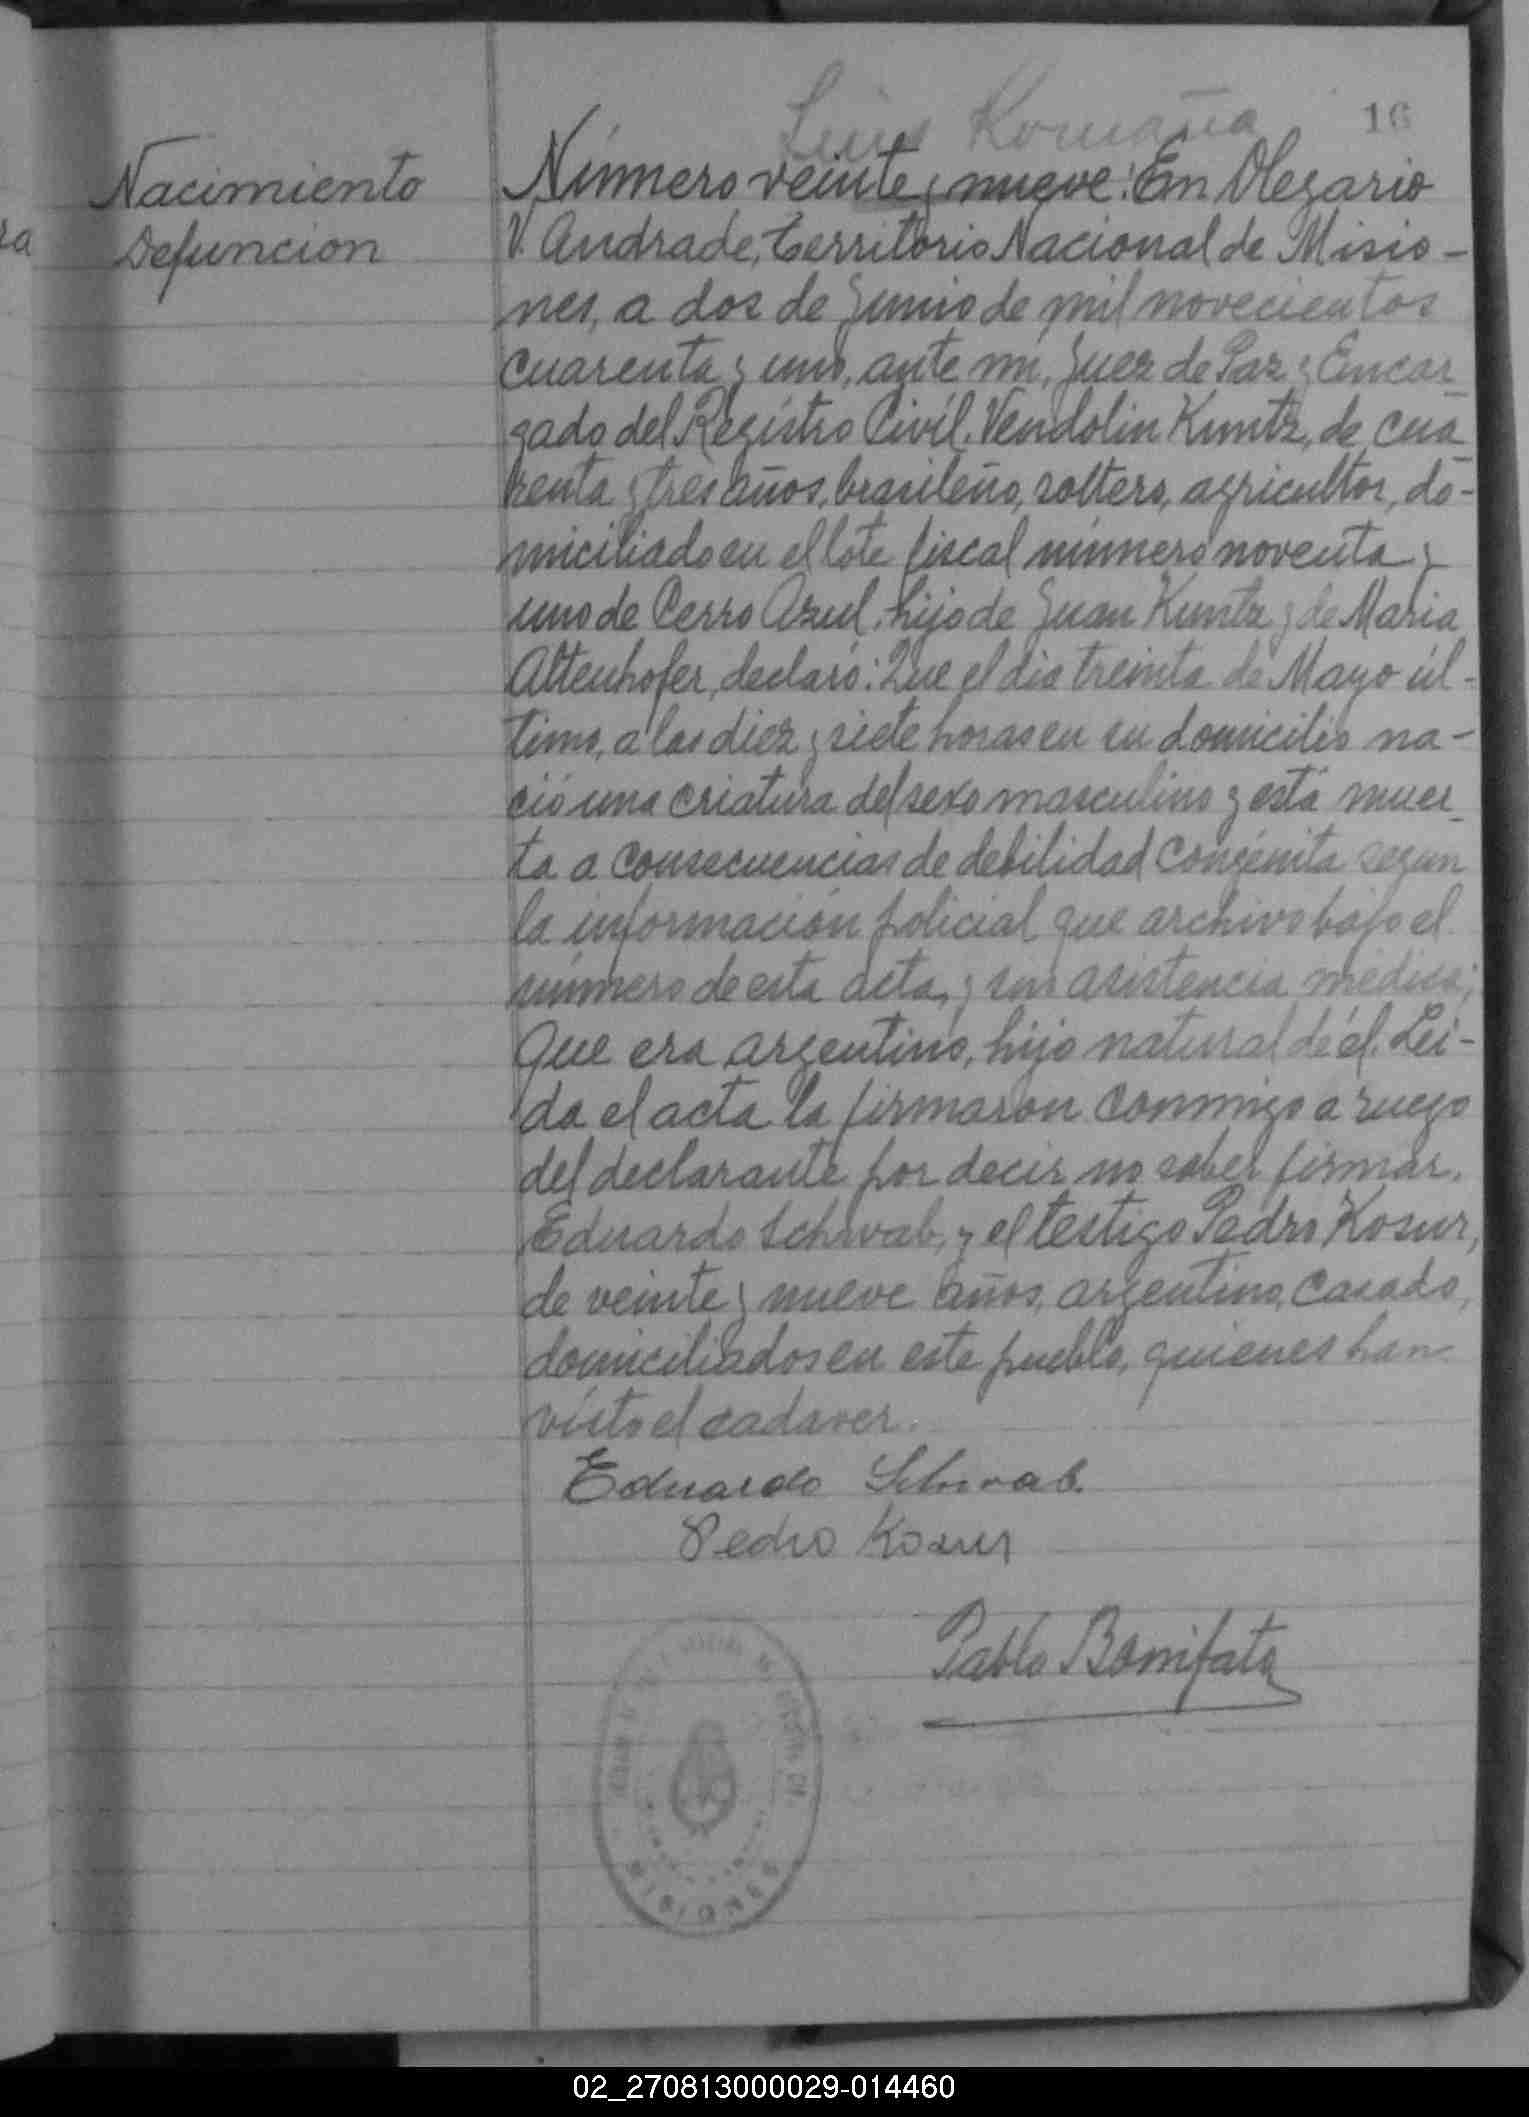 16
Nacimiento
Defuncion
Número veinte y nueve: En Olegario
V. Andrade, territorio Nacional de Misio-
nes, a dos de Junio de mil novecientos
cuarenta y uno, ante mi, Juez de Paz y Encar
gado del Registro Civil, Vendolin Kuntz, de cua
renta y tres años, brasileño, soltero, agricultor, do-
miciliado en el lote fiscal número noventa y
uno de Cerro Azul, hijo de Juan Kuntz y de Maria
Altenhofer, declaró: Que el dia treinta de Mayo úl-
timo, a las diez y siete horas en su domicilio na-
ció una criatura del sexo masculino y está muer
ta a consecuencias de debilidad congénita segun
la información policial que archivo bajo el
número de esta acta, y sin asistencia médica;
Que era argentino, hijo natural de él. Lei-
da el acta la firmaron conmigo a ruego
del declarante por decir no saber firmar,
Eduardo Schwab, y el testigo Pedro Kosur,
de veinte y nueve años, argentino, casado,
domiciliados en este pueblo, quienes han
visto el cadaver.
Eduardo Schwab.
Pedro Kosur
Pablo Bonifato
MISIONES
02_270813000029-014460